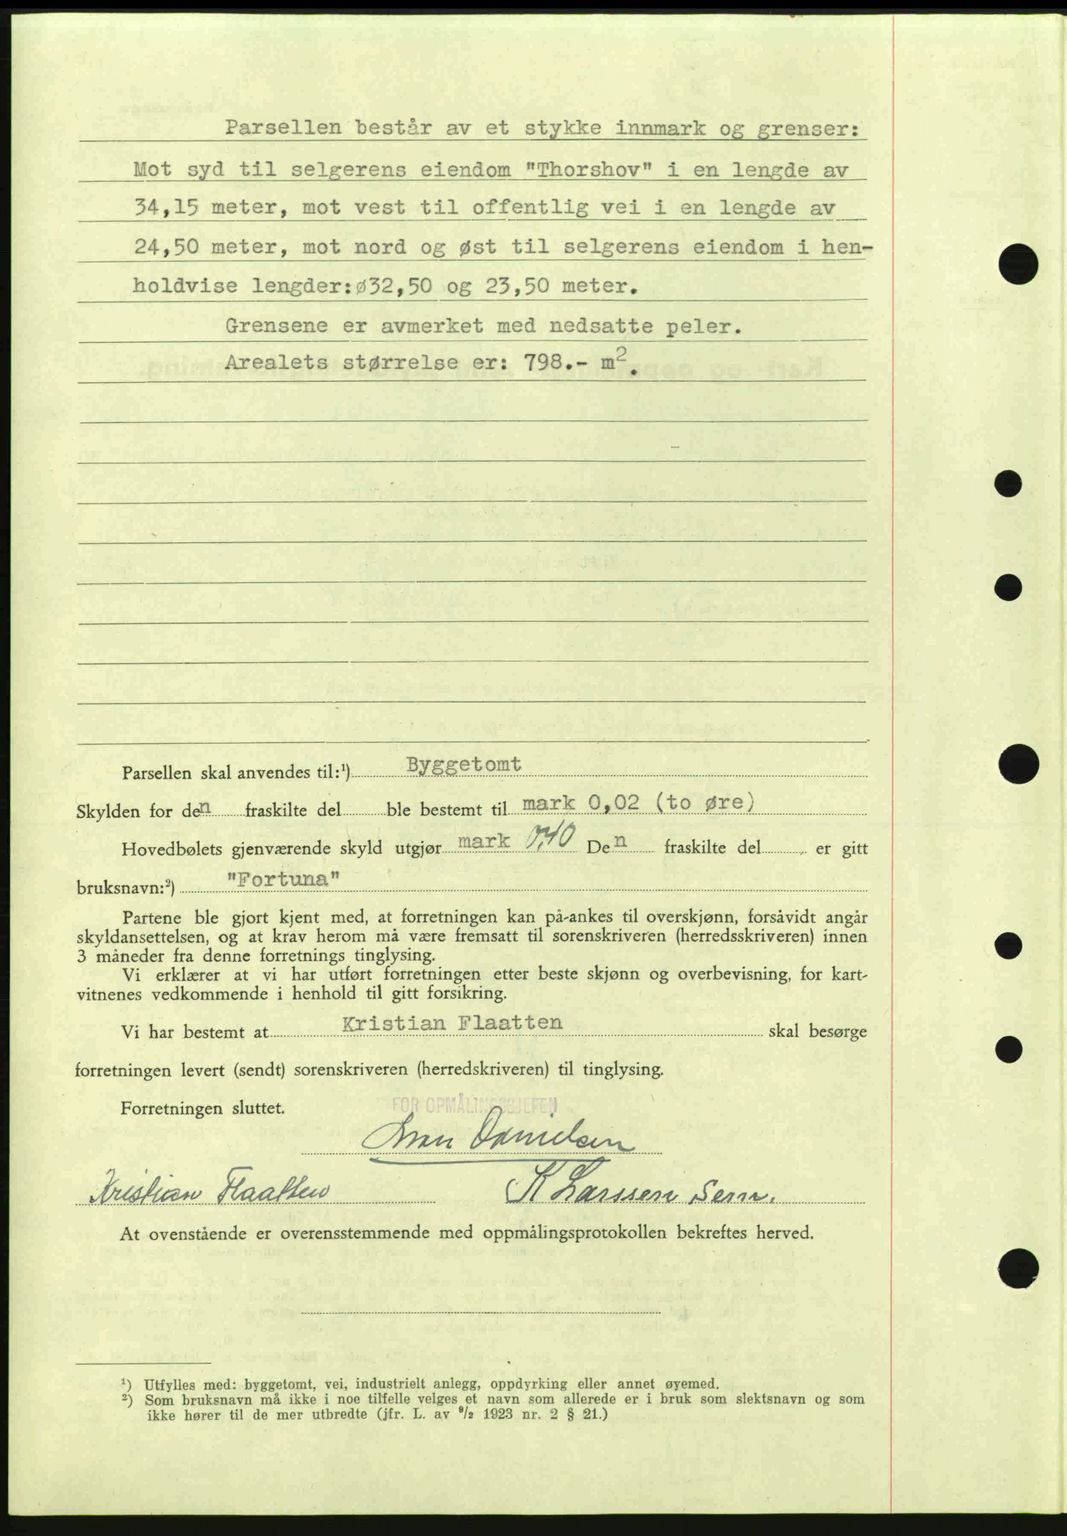 Parsellen består av et stykke innmark og grenser:
Mot syd til selgerens eiendom "Thorshov" i en lengde av
34,15 meter, mot vest til offentlig vei i en lengde av
24,50 meter, mot nord og øst til selgerens eiendom i hen-
holdvise lengder:ø32,50 og 23,50 meter.
Grensene er avmerket med nedsatte peler.
Arealets størrelse er: 798.- m².
Parsellen skal anvendes til:¹) Byggetomt
Skylden for den fraskilte del ble bestemt til mark 0,02 (to øre)
Hovedbølets gjenværende skyld utgjør mark 0,40 Den fraskilte del er gitt
bruksnavn:²) "Fortuna"
Partene ble gjort kjent med, at forretningen kan på-ankes til overskjønn, forsåvidt angår
skyldansettelsen, og at krav herom må være fremsatt til sorenskriveren (herredsskriveren) innen
3 måneder fra denne forretnings tinglysing.
Vi erklærer at vi har utført forretningen etter beste skjønn og overbevisning, for kart-
vitnenes vedkommende i henhold til gitt forsikring.
Vi har bestemt at Kristian Flaatten skal besørge
forretningen levert (sendt) sorenskriveren (herredskriveren) til tinglysing.
Forretningen sluttet.
FOR OPMÅLINGSSJEFEN
Danielsen
Kristian Flaatten K Larssen Sem.
At ovenstående er overensstemmende med oppmålingsprotokollen bekreftes herved.
¹) Utfylles med: byggetomt, vei, industrielt anlegg, oppdyrking eller annet øyemed.
²) Som bruksnavn må ikke i noe tilfelle velges et navn som allerede er i bruk som slektsnavn og som
ikke hører til de mer utbredte (jfr. L. av ⁹/₂ 1923 nr. 2 § 21.)